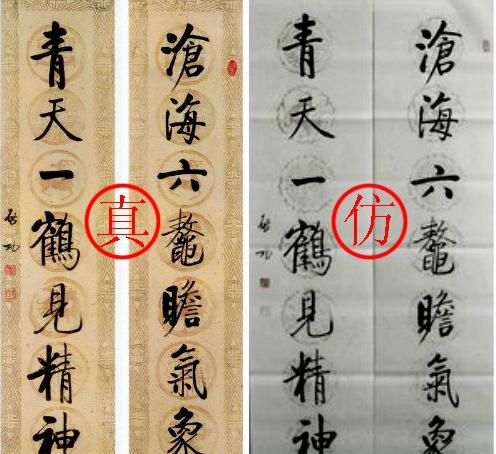 滄海六鼇瞻氣象
青天一鶴見精神
啟功
真
滄海六鼇瞻氣象
青天一鶴見精神
啟功
仿